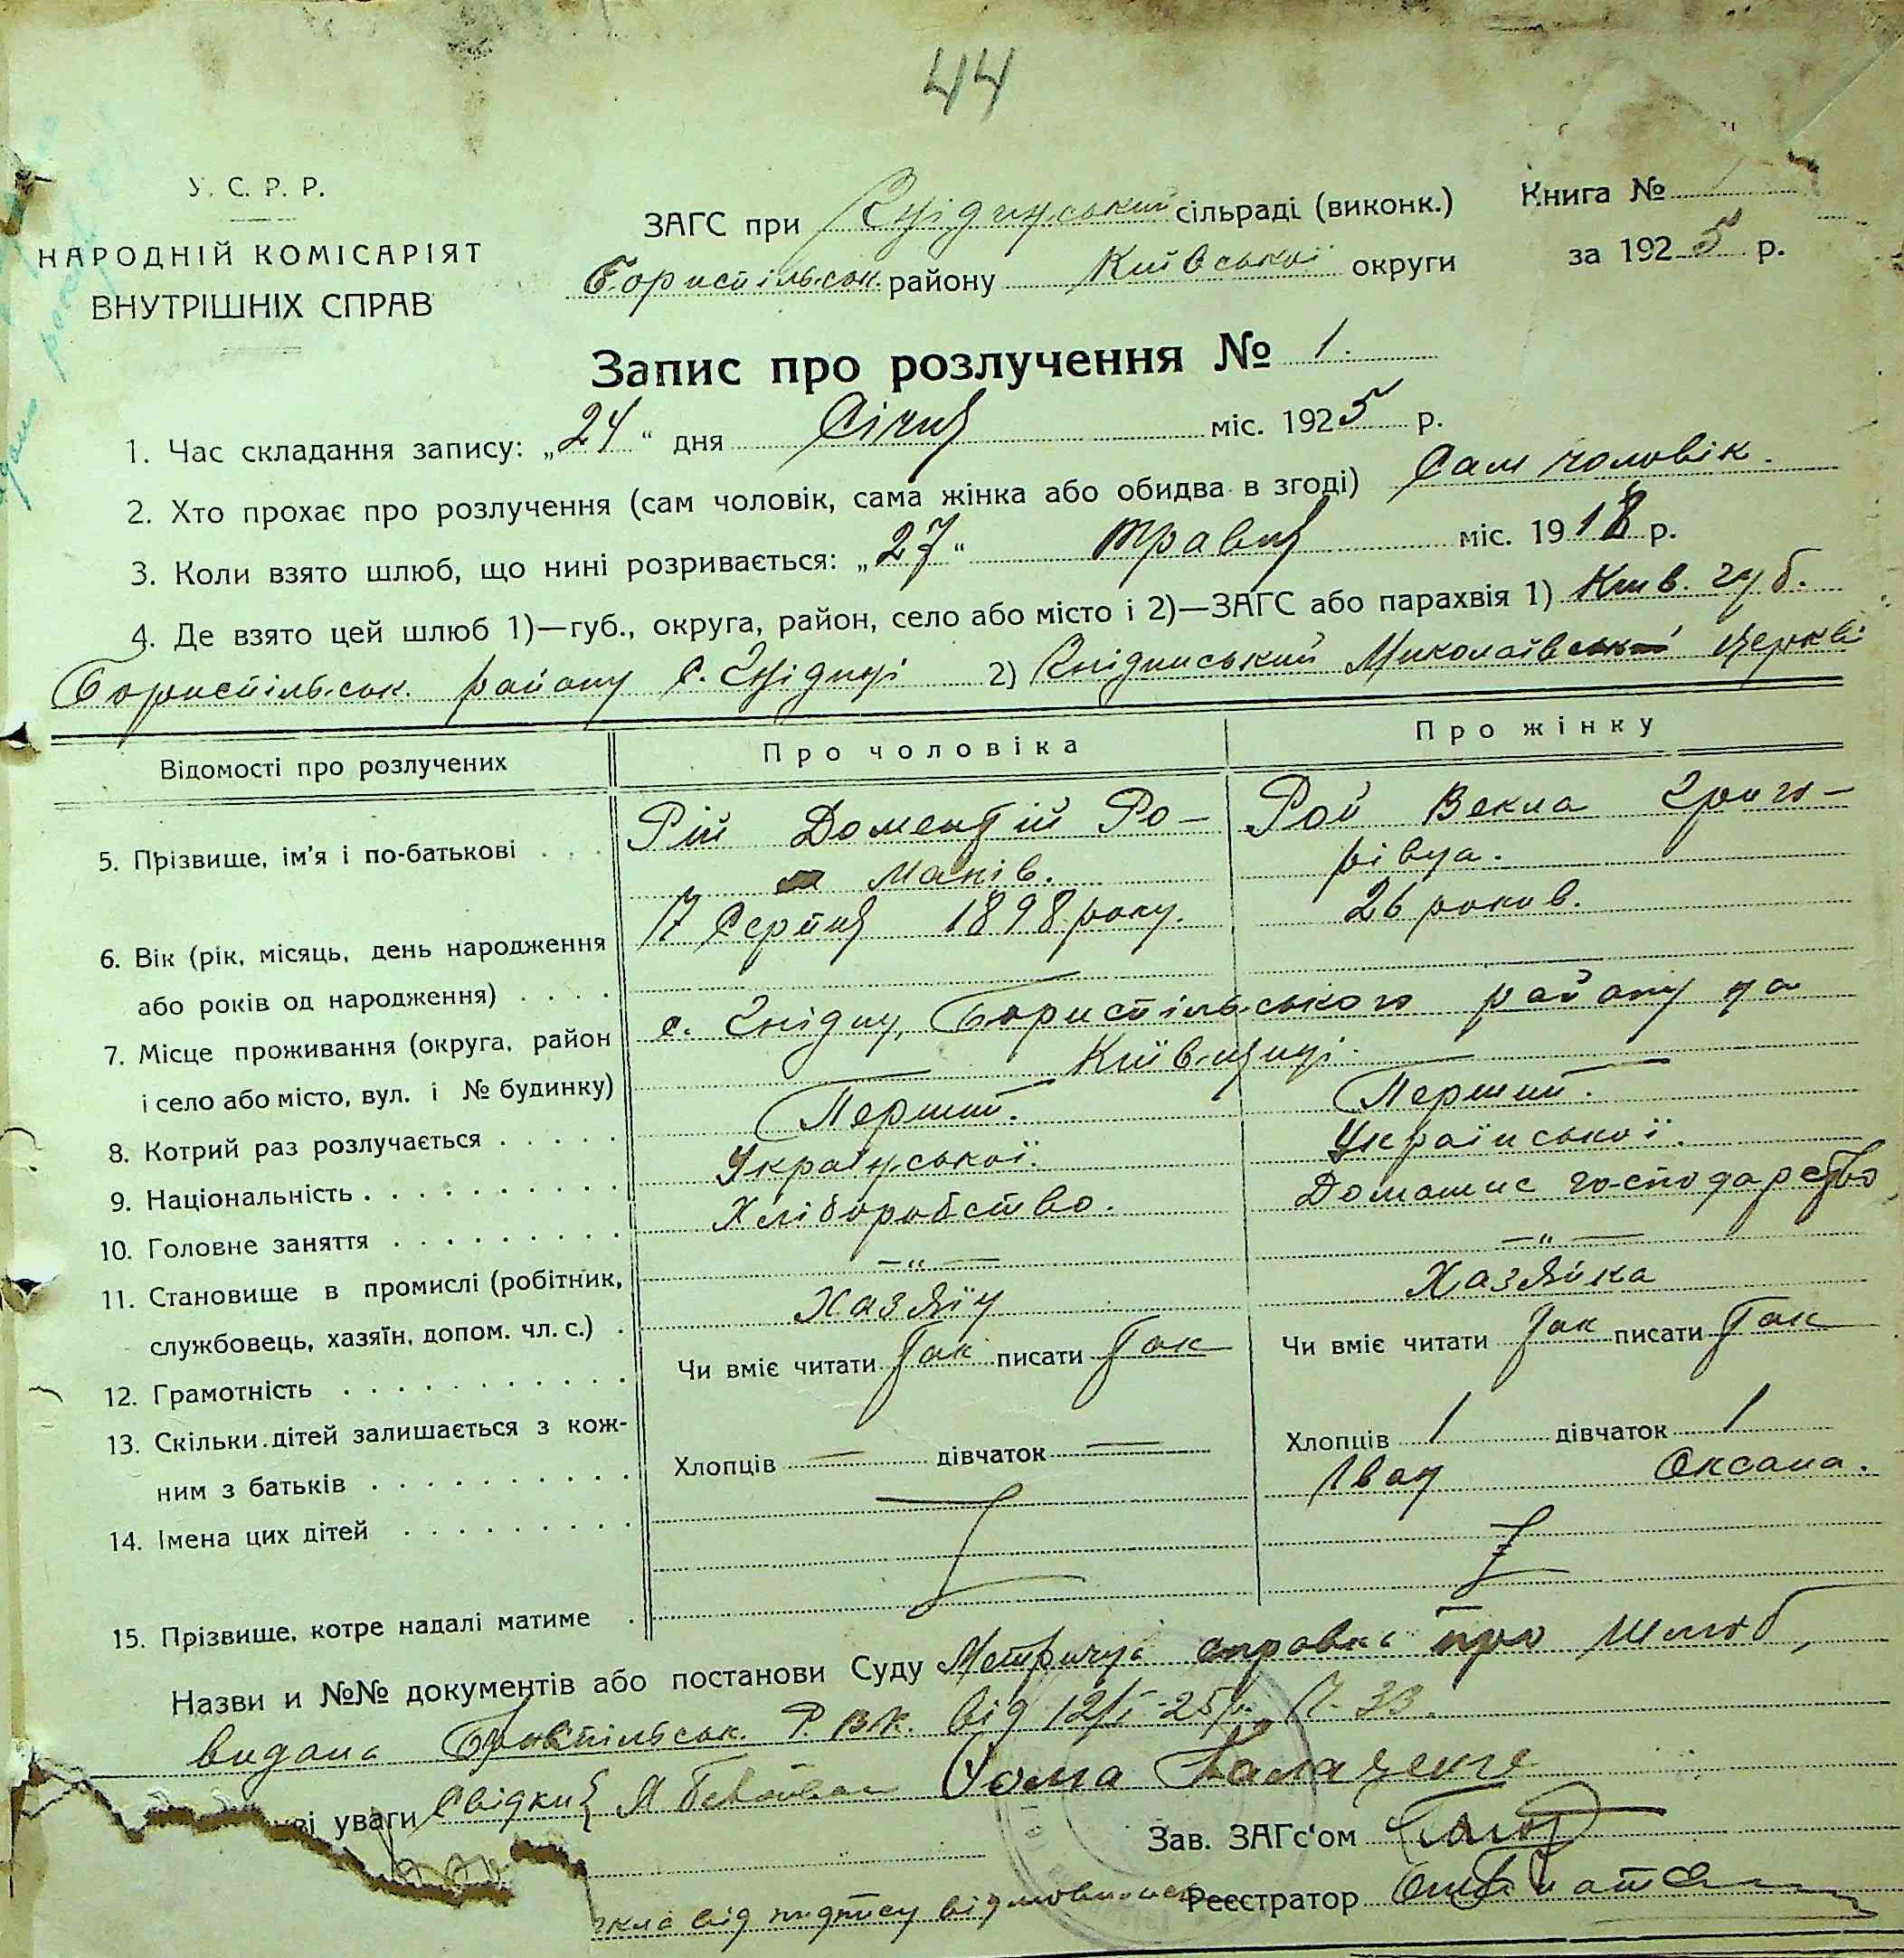 44
У. С. Р. Р.
НАРОДНІЙ КОМІСАРІЯТ
ВНУТРІШНІХ СПРАВ
ЗАГС при Гнідинський сільраді (виконк.)
Бориспільськ. району Київської округи
Книга № 1
за 1925 р.
Запис про розлучення № 1.
1. Час складання запису: „24“ дня Січня міс. 1925 р.
2. Хто прохає про розлучення (сам чоловік, сама жінка або обидва в згоді) Сам чоловік.
3. Коли взято шлюб, що нині розривається: „27“ травня міс. 1918 р.
4. Де взято цей шлюб 1)—губ., округа, район, село або місто і 2)—ЗАГС або парахвія 1) Киів. губ.
Бориспільськ. району С. Гнідинці 2) Гнідинський Миколаївський церкві
Відомості про розлучених
Про чоловіка
Про жінку
5. Прізвище, ім'я і по-батькові
Рій Дометій Ро-
манів.
Рой Векла Григо-
рівна.
6. Вік (рік, місяць, день народження
або років од народження)
17 Серпня 1898 року.
26 років.
7. Місце проживання (округа, район
і село або місто, вул. і № будинку)
с. Гнідин, Бориспільського району на
Київщині.
8. Котрий раз розлучається
Перший.
Перший.
9. Національність
Української.
Української.
10. Головне заняття
Хліборобство.
Домашнє господарство
11. Становище в промислі (робітник,
службовець, хазяїн, допом. чл. с.)
— „ —
Хазяїн
— „ —
Хазяйка
12. Грамотність
Чи вміє читати Так писати Так
Чи вміє читати Так писати Так
13. Скільки дітей залишається з кож-
ним з батьків
Хлопців — дівчаток —
Хлопців 1 дівчаток 1
14. Імена цих дітей
Іван Оксана.
15. Прізвище, котре надалі матиме
Назви и №№ документів або постанови Суду Метрична справка про шлюб,
видана Бориспільськ. Р.В.К. від 12/I-25 р. № 33.
ві уваги Свідки Хома
Зав. ЗАГс'ом
від підпису відмовилась
Реєстратор